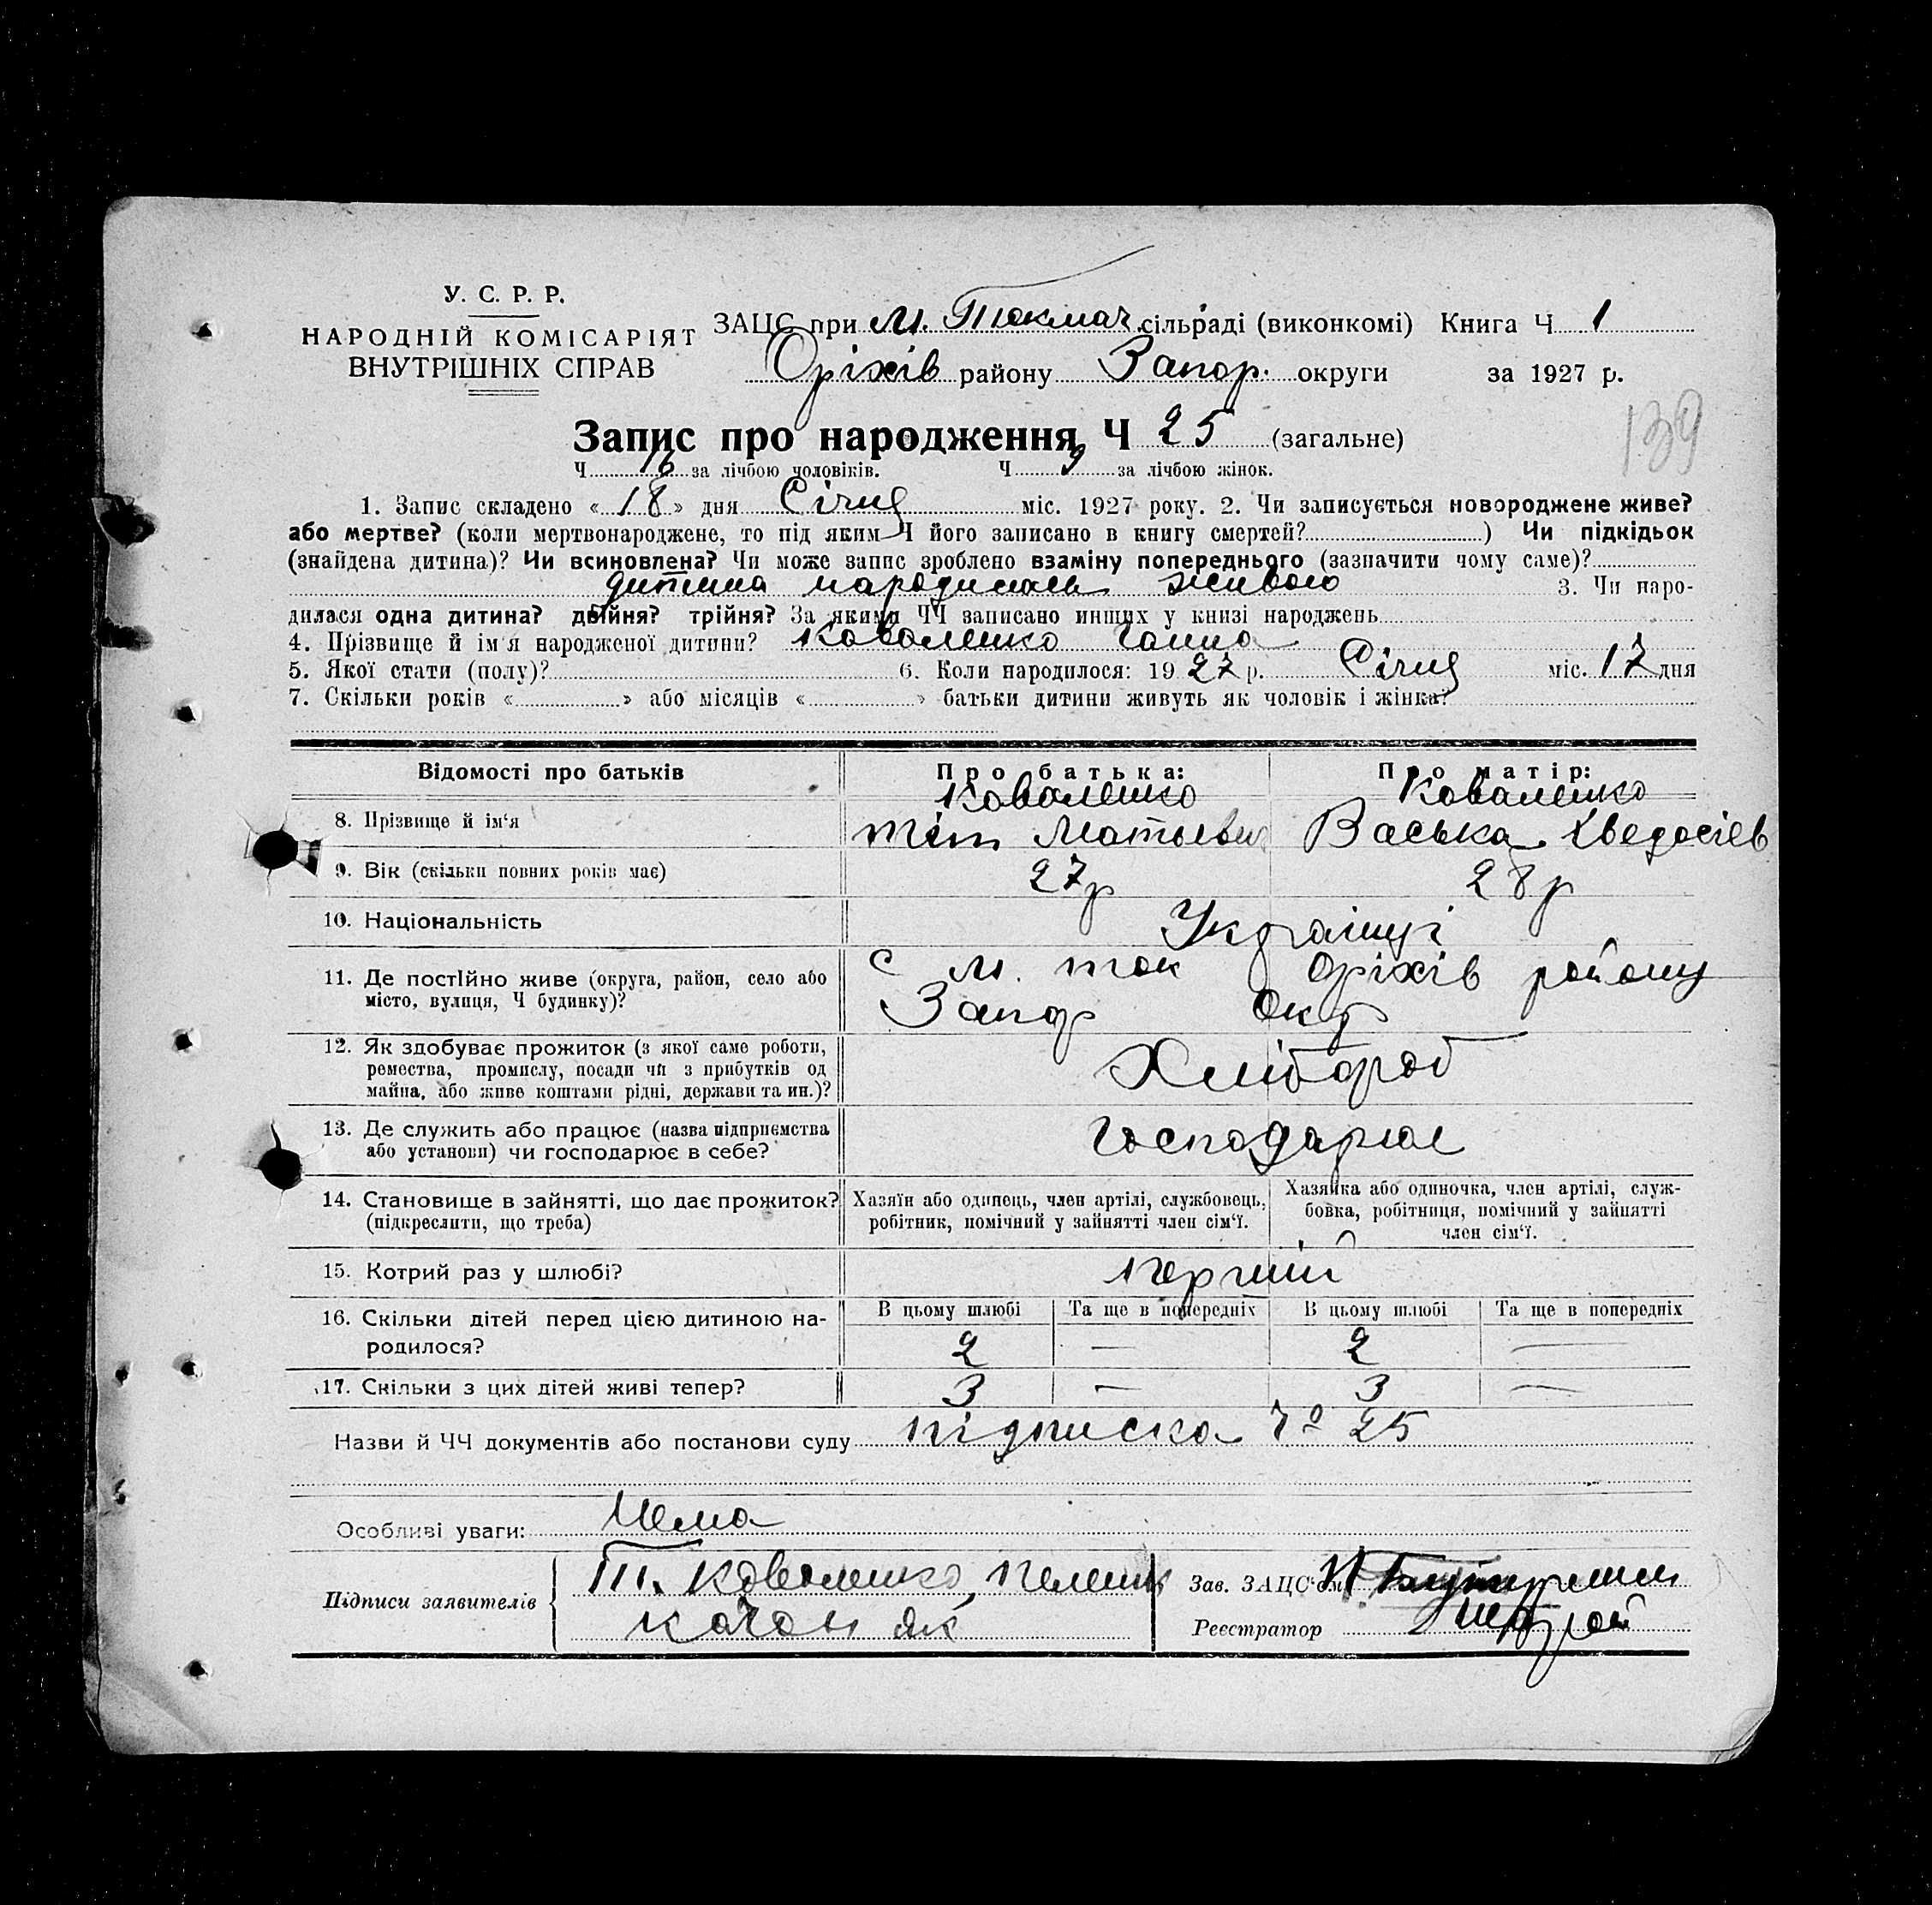 У. С. Р. Р.
НАРОДНІЙ КОМІСАРІЯТ
ВНУТРІШНІХ СПРАВ
ЗАЦС при М. Токмач. сільраді (виконкомі) Книга Ч 1
Оріхів району Запор. округи за 1927 р.
139
Запис про народження Ч 25 (загальне)
Ч 16 за лічбою чоловіків. Ч 9 за лічбою жінок.
1. Запис складено «18» дня Січня міс. 1927 року. 2. Чи записується новороджене живе?
або мертве? (коли мертвонароджене, то під яким Ч його записано в книгу смертей?) Чи підкідьок
(знайдена дитина)? Чи всиновлена? Чи може запис зроблено взаміну попереднього (зазначити чому саме)?
дитина народилась живою 3. Чи наро-
дилася одна дитина? двійня? трійня? За якими ЧЧ записано инших у книзі народжень
4. Прізвище й ім'я народженої дитини? Коваленко Ганна
5. Якої стати (полу)? 6. Коли народилося: 1927 р. Січня міс. 17 дня
7. Скільки років «» або місяців «» батьки дитини живуть як чоловік і жінка?
Відомості про батьків Про батька: Про матір:
Коваленко Коваленко
8. Прізвище й ім'я Тит Матвієвич Васька Хведосієв
9. Вік (скільки повних років має) 27р 28р
10. Національність Українці
11. Де постійно живе (округа, район, село або
місто, вулиця, Ч будинку)?
с М. ток Оріхів району
Запор Окр
12. Як здобуває прожиток (з якої саме роботи,
ремества, промислу, посади чи з прибутків од
майна, або живе коштами рідні, держави та ин.)?
Хлібороб
13. Де служить або працює (назва підприємства
або установи) чи господарює в себе?
Господарює
14. Становище в зайнятті, що дає прожиток?
(підкреслити, що треба)
Хазяїн або одинець, член артілі, службовець,
робітник, помічний у зайнятті член сім'ї.
Хазяйка або одиночка, член артілі, служ-
бовка, робітниця, помічний у зайнятті
член сім'ї.
15. Котрий раз у шлюбі? перший
16. Скільки дітей перед цією дитиною на-
родилося?
В цьому шлюбі Та ще в попередніх В цьому шлюбі Та ще в попередніх
2 — 2 —
17. Скільки з цих дітей живі тепер? 3 — 3 —
Назви й ЧЧ документів або постанови суду підписка № 25
Особливі уваги: Нема
Підписи заявителів Т. Коваленко,
Зав. ЗАЦС'ом
Реєстратор